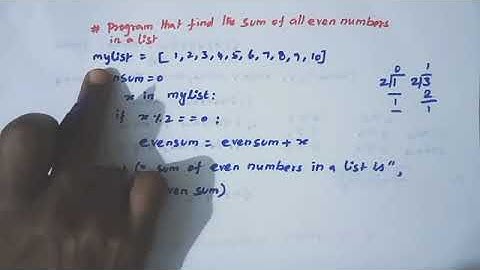 # Program that find the sum of all even numbers
in a list
mylist = [ 1, 2, 3, 4, 5, 6, 7, 8, 9, 10]
nsum = 0
x in mylist:
if x % 2 == 0 :
evensum = evensum + x
(" sum of even numbers in a list is",
ven sum)
0
2 1
1
1
2 3
2
1